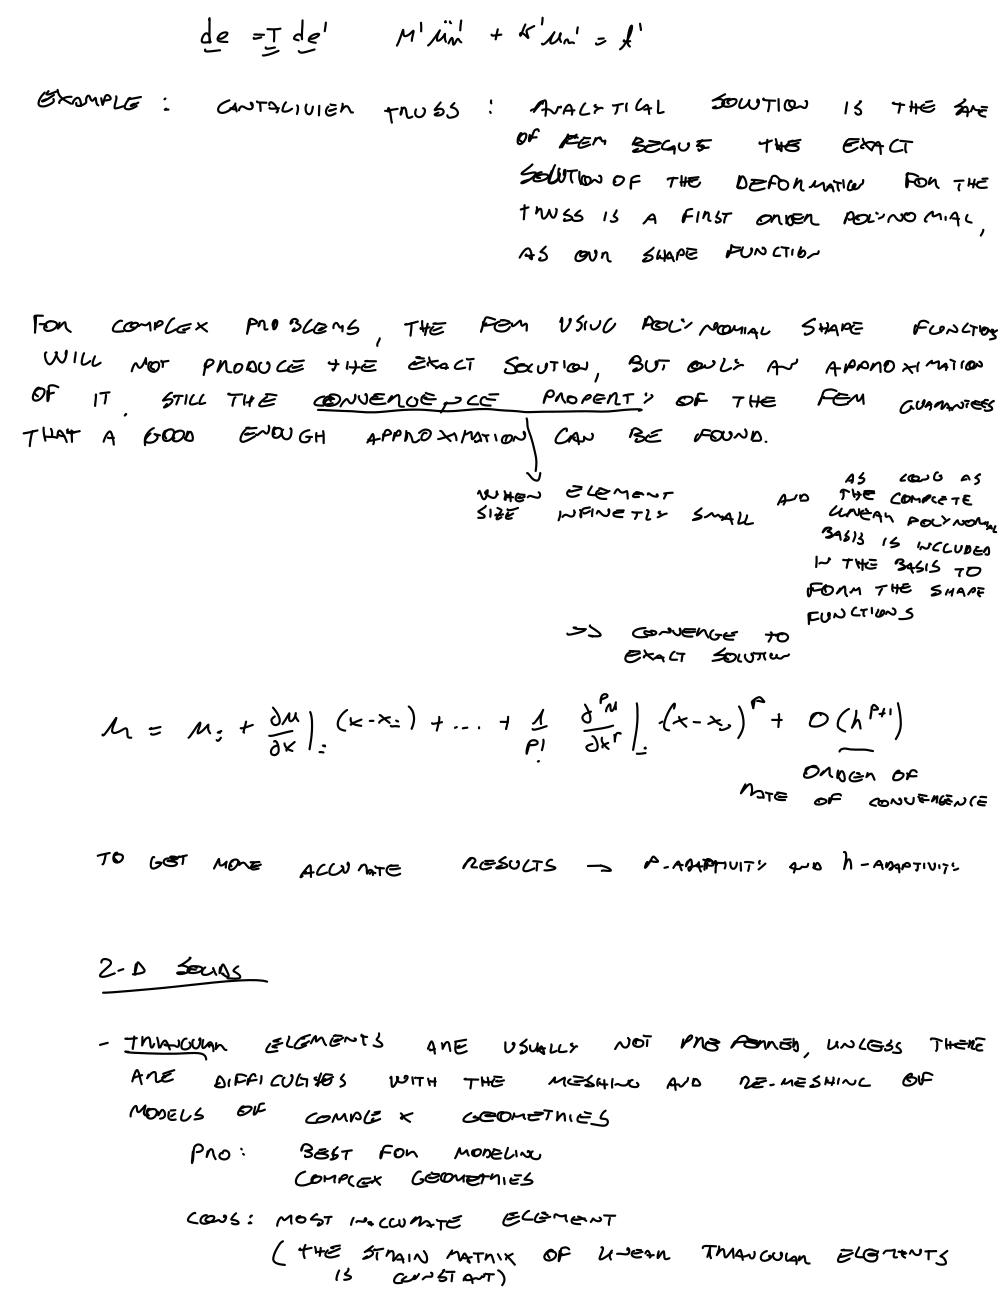 de = T de' M' ün' + K' un' = f'
EXAMPLE : CANTALIVIER TRUSS : ANALYTICAL SOLUTION IS THE SAME
OF FEM BECAUSE THE EXACT
SOLUTION OF THE DEFORMATION FOR THE
TRUSS IS A FIRST ORDER POLYNOMIAL,
AS OUR SHAPE FUNCTION
FOR COMPLEX PROBLEMS, THE FEM USING POLYNOMIAL SHAPE FUNCTION
WILL NOT PRODUCE THE EXACT SOLUTION, BUT ONLY AN APPROXIMATION
OF IT. STILL THE CONVERGENCE PROPERTY OF THE FEM GUARANTEES
THAT A GOOD ENOUGH APPROXIMATION CAN BE FOUND.
WHEN ELEMENT
SIZE INFINETLY SMALL
AND
AS LONG AS
THE COMPLETE
LINEAR POLYNOMIAL
BASIS IS INCLUDED
IN THE BASIS TO
FORM THE SHAPE
FUNCTIONS
=> CONVERGE TO
EXACT SOLUTION
u = ui + ∂u/∂x|i (x-xi) + ... + 1/p! ∂^p u/∂x^p|i (x-xi)^p + O(h^p+1)
ORDER OF
RATE OF CONVERGENCE
TO GET MORE ACCURATE RESULTS → P-ADAPTIVITY AND h-ADAPTIVITY
2-D SOLIDS
- TRIANGULAR ELEMENTS ARE USUALLY NOT PREFERRED, UNLESS THERE
ARE DIFFICULTIES WITH THE MESHING AND RE-MESHING OF
MODELS OF COMPLEX GEOMETRIES
PRO: BEST FOR MODELING
COMPLEX GEOMETRIES
CONS: MOST INACCURATE ELEMENT
(THE STRAIN MATRIX OF LINEAR TRIANGULAR ELEMENTS
IS CONSTANT)